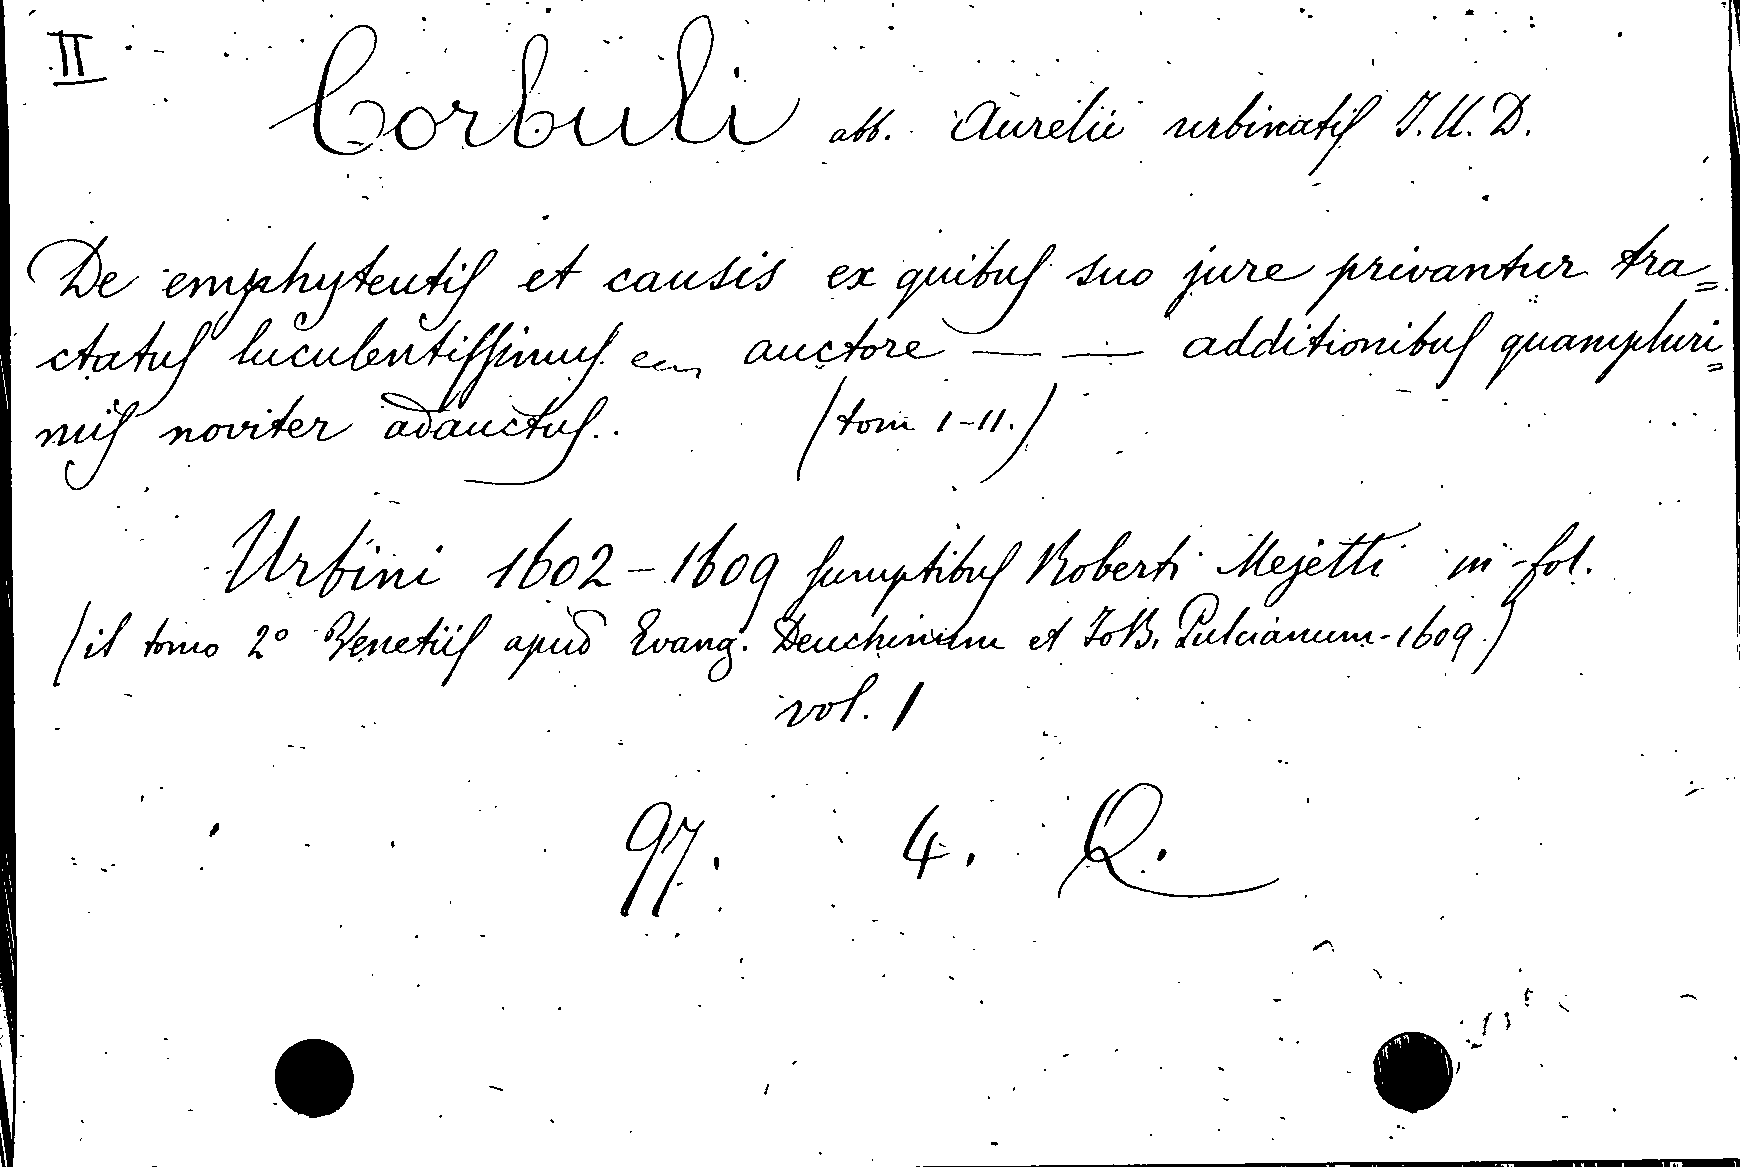 II
Corbuli abb. Aurelii urbinatis J. U. D.
De emphyteutis et causis ex quibus suo jure privantur tra=
ctatus luculentissimus auctore — — additionibus quampluri=
mis noviter adauctus.. (tom 1-11.)
Urbini 1602-1609 sumptibus Roberti Mejetti in fol.
(il tomo 2° Venetiis apud Evang. Deuchinum et JoB. Pulcianum-1609.)
vol. 1
97. 4. Q.